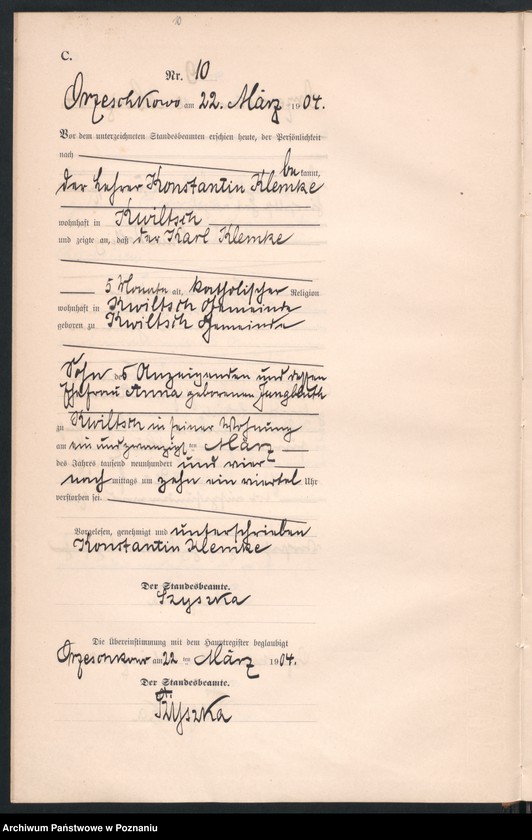 10
C.
Nr. 10
Orzeschkowo am 22. März 1904.
Vor dem unterzeichneten Standesbeamten erschien heute, der Persönlichkeit
nach bekannt,
der Lehrer Konstantin Klemke
wohnhaft in Kwiltsch
und zeigte an, daß der Karl Klemke
5 Monate alt, katholischer Religion
wohnhaft in Kwiltsch Gemeinde
geboren zu Kwiltsch Gemeinde
Sohn des Anzeigenden und dessen
Ehefrau Anna geborenen Jungbluth
zu Kwiltsch in seiner Wohnung
am ein und zwanzigsten März
des Jahres tausend neunhundert und vier
nachmittags um zehn ein viertel Uhr
verstorben sei.
Vorgelesen, genehmigt und unterschrieben
Konstantin Klemke
Der Standesbeamte.
Szyszka
Die Übereinstimmung mit dem Hauptregister beglaubigt
Orzeschkowo am 22 ten März 1904.
Der Standesbeamte.
Szyszka
Archiwum Państwowe w Poznaniu